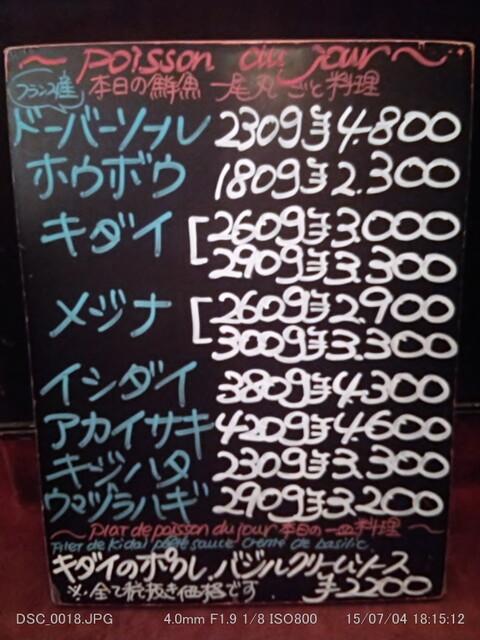 ~ poisson du jour ~
フランス産 本日の鮮魚 一尾丸ごと料理
ドーバーソール 230g ¥4.800
ホウボウ 180g ¥2.300
キダイ [260g ¥3.000
290g ¥3.300
メジナ [260g ¥2.900
300g ¥3.300
イシダイ 380g ¥4.300
アカイサキ 420g ¥4.600
キジハタ 230g ¥3.300
ウマヅラハギ 290g ¥3.200
~ plat de poisson du jour 本日の一皿料理 ~
Filet de kidai poêlé sauce crème de basilic
キダイのポワレ バジルクリームソース
※全て税抜き価格です ¥2200
DSC_0018.JPG 4.0mm F1.9 1/8 ISO800 15/07/04 18:15:12